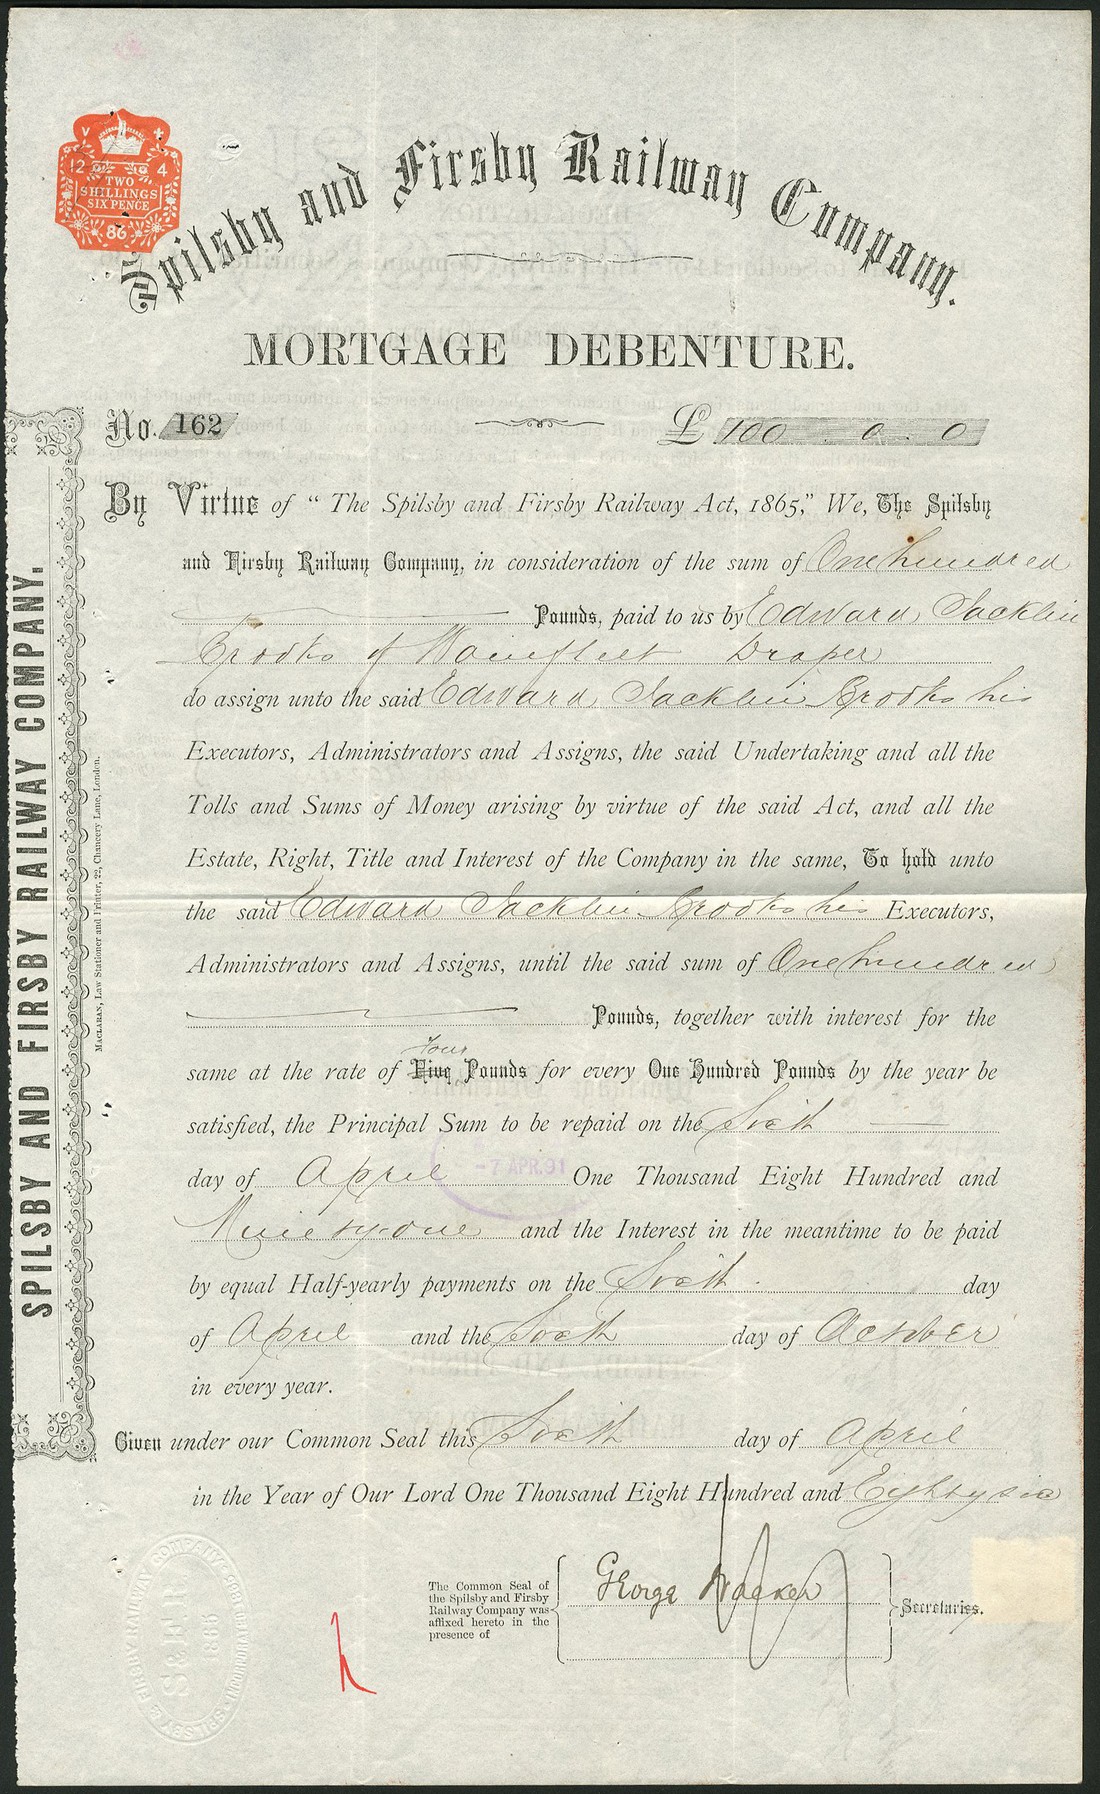 V +
12 4
TWO
SHILLINGS
SIX PENCE
86
Spilsby and Firsby Railway Company.
MORTGAGE DEBENTURE.
No. 162 £ 100 . 0 . 0
By Virtue of “The Spilsby and Firsby Railway Act, 1865,” We, The Spilsby
and Firsby Railway Company, in consideration of the sum of One hundred
Pounds, paid to us by Edward Jacklin
Crooks of Wainfleet Draper
do assign unto the said Edward Jacklin Crooks his
Executors, Administrators and Assigns, the said Undertaking and all the
Tolls and Sums of Money arising by virtue of the said Act, and all the
Estate, Right, Title and Interest of the Company in the same, To hold unto
the said Edward Jacklin Crooks his Executors,
Administrators and Assigns, until the said sum of One hundred
Pounds, together with interest for the
four
same at the rate of Five Pounds for every One Hundred Pounds by the year be
satisfied, the Principal Sum to be repaid on the Sixth
day of April One Thousand Eight Hundred and
-7 APR.91
Ninety one and the Interest in the meantime to be paid
by equal Half-yearly payments on the Sixth day
of April and the Sixth day of October
in every year.
Given under our Common Seal this Sixth day of April
in the Year of Our Lord One Thousand Eight Hundred and Eighty six
The Common Seal of
the Spilsby and Firsby
Railway Company was
affixed hereto in the
presence of
George Walker
Secretaries.
SPILSBY AND FIRSBY RAILWAY COMPANY.
MACLARAN, Law Stationer and Printer, 22, Chancery Lane, London.
SPILSBY & FIRSBY RAILWAY COMPANY
INCORPORATED 1865
S & F R
1865